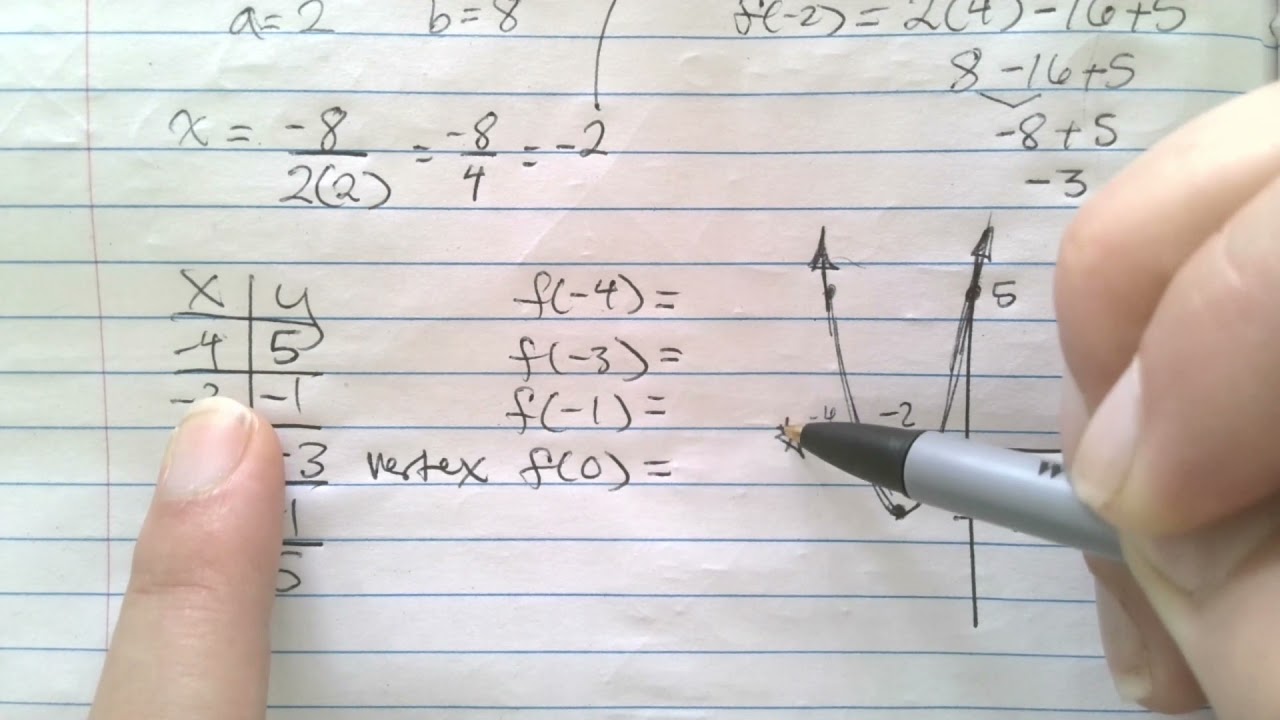 a=2 b=8
f(-2) = 2(4) -16+5
8 -16+5
-8+5
-3
x = -8/2(2) = -8/4 = -2
x | y
-4 | 5
| -1
-3 vertex
f(-4) =
f(-3) =
f(-1) =
f(0) =
5
-2